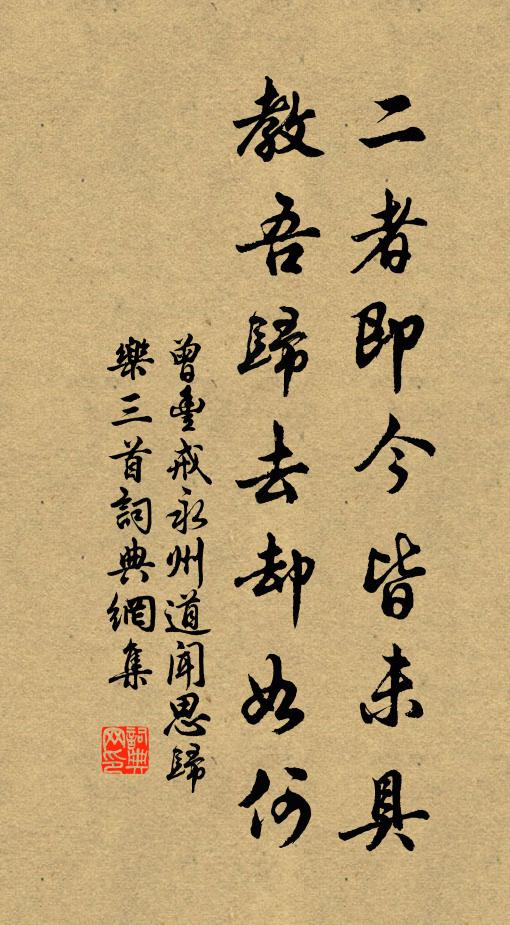 二者即今皆未具
教吾歸去却如何
曾豐戒永州道聞思歸
樂三首詞典網集
詞典
网印